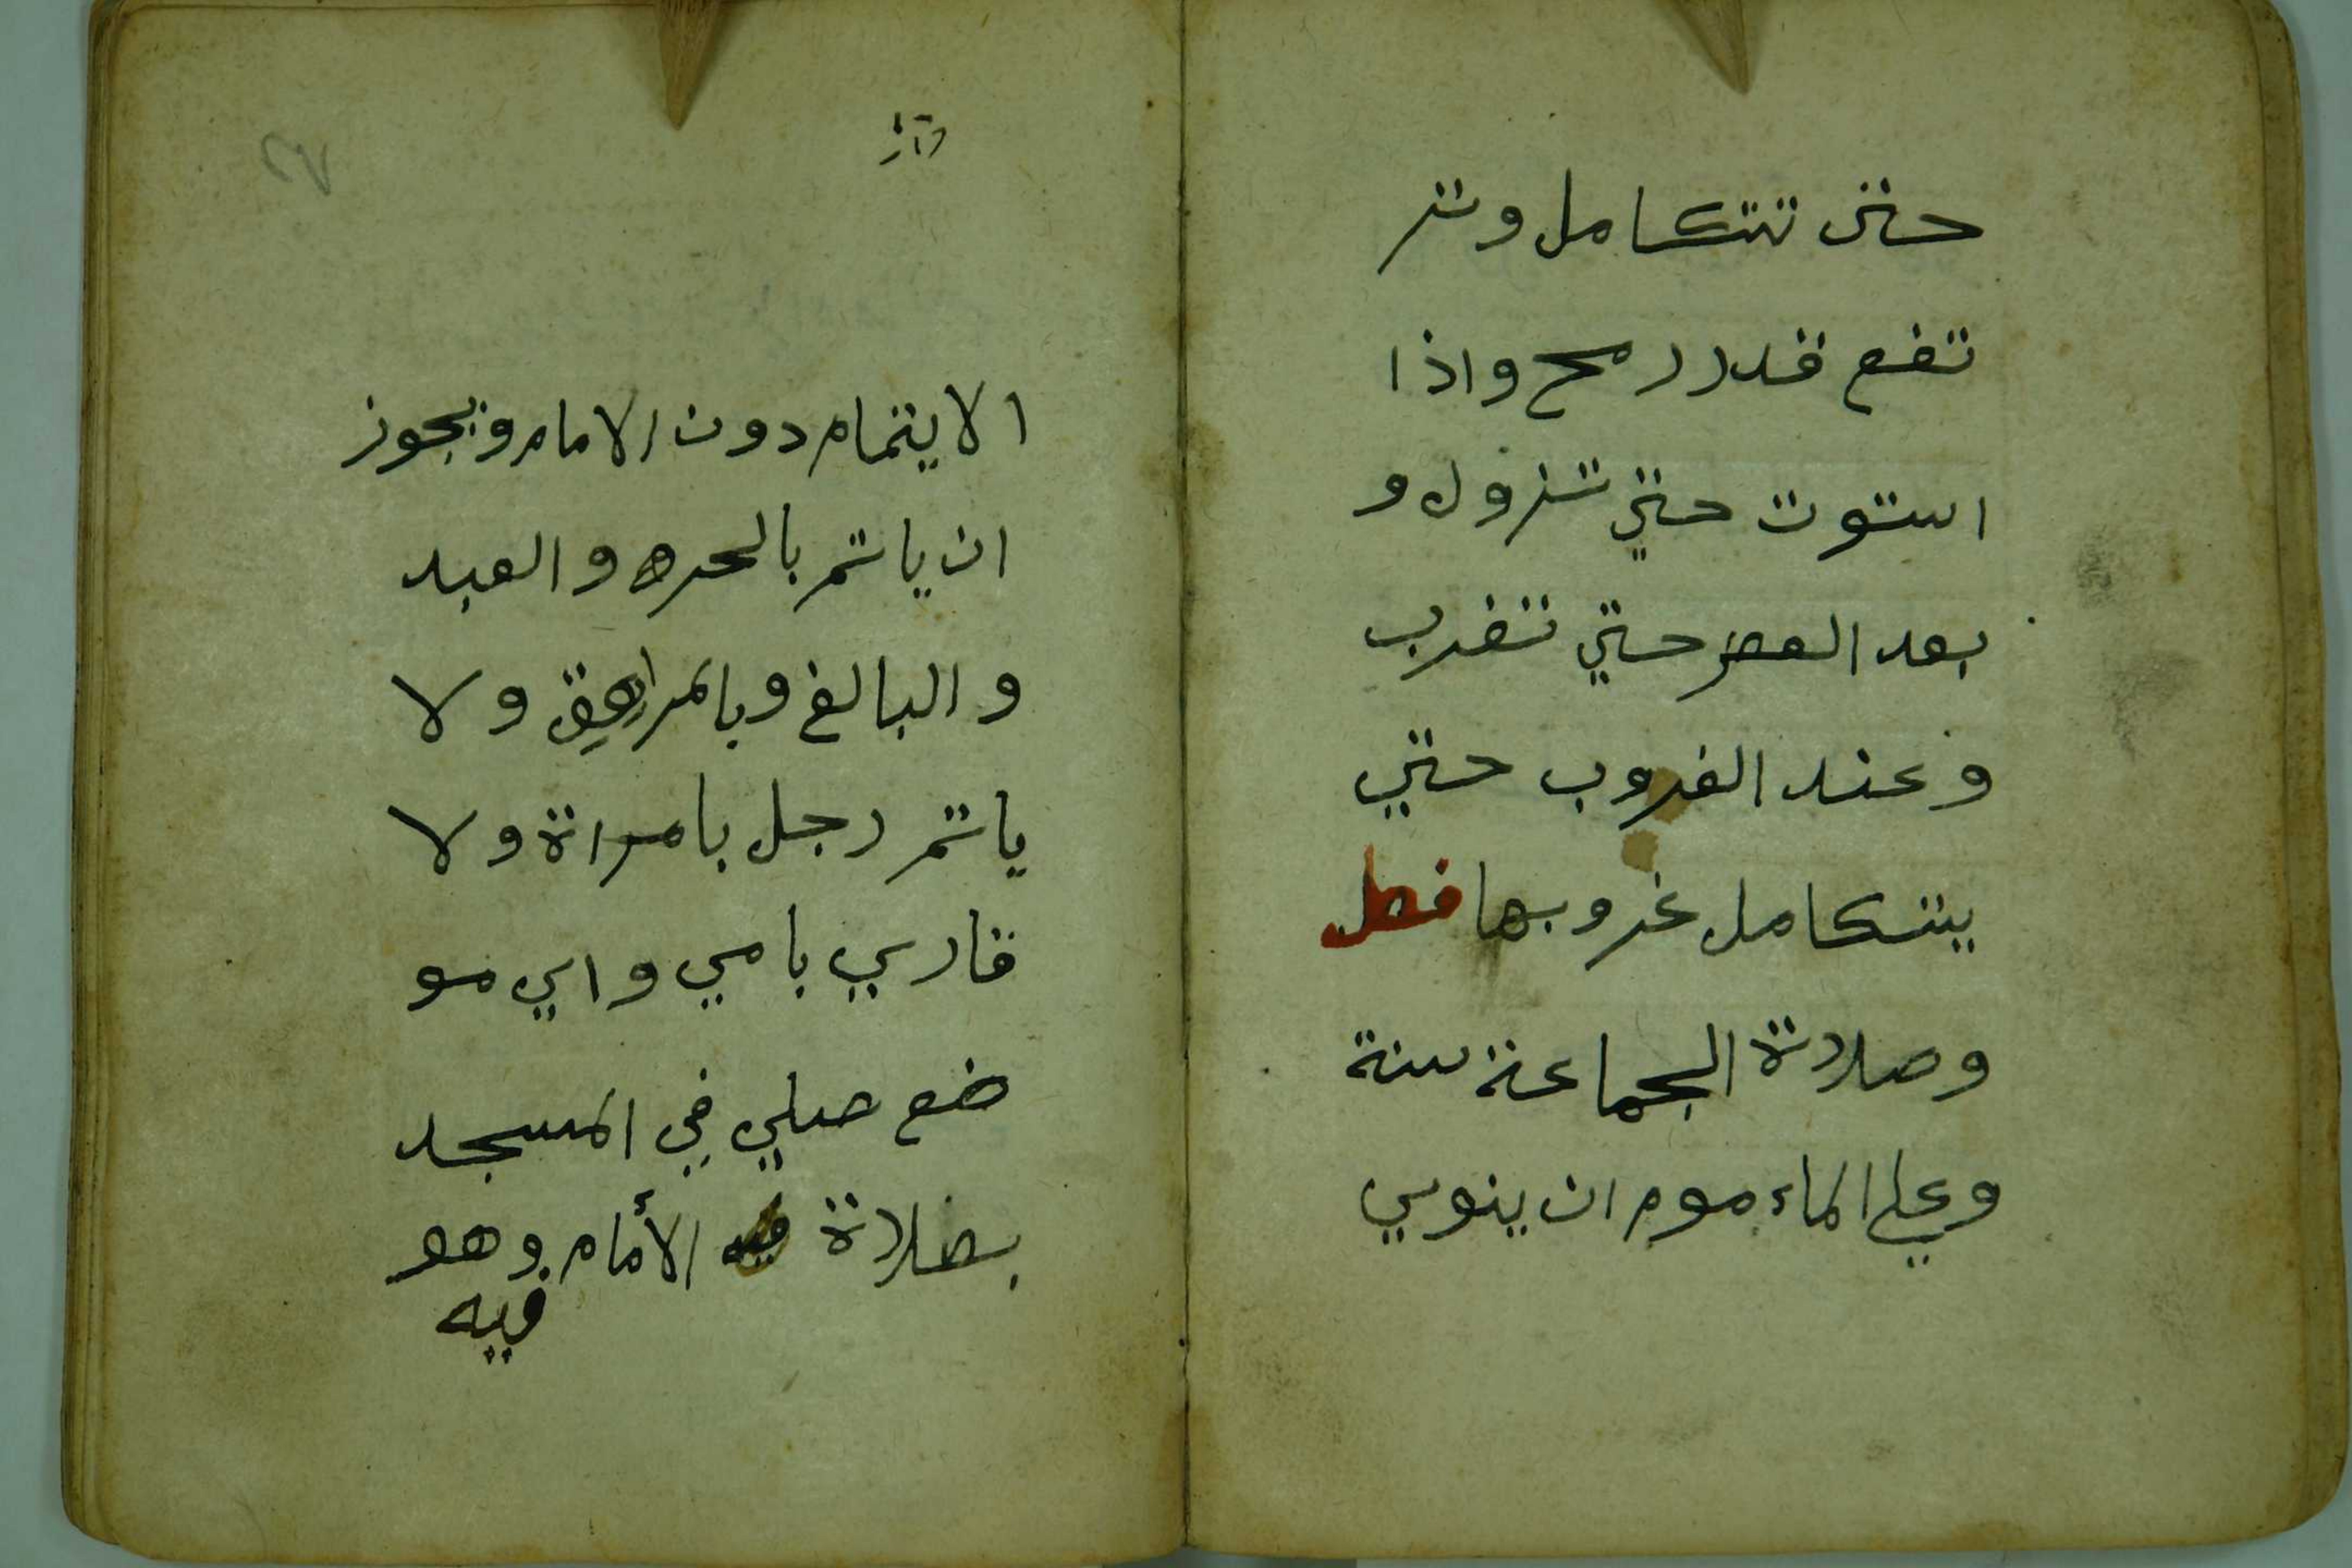 حتى تتكامل وتر
تفع قدر رمح واذا
استوت حتي تزول و
بعد العصر حتي تغرب
وعند الغروب حتي
يتكامل غروبها فصل
وصلاة الجماعة سنة
وعلي الماءموم ان ينوي
الايتمام دون الامام ويجوز
ان ياتمر بالحره والعبد
والبالغ وبالمراهق ولا
ياتمر رجل بامراة ولا
قاري بامي واي مو
ضع صلي في المسجد
بصلاة فيه الأمام وهو
فيه